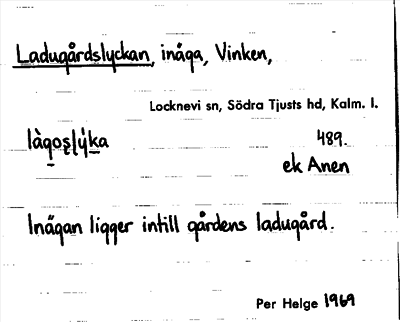 Ladugårdslyckan, inäga, Vinken,
Locknevi sn, Södra Tjusts hd, Kalm. l.
làgos̥lẏ̀ka 489.
ek Anen
Inägan ligger intill gårdens ladugård.
Per Helge 1969